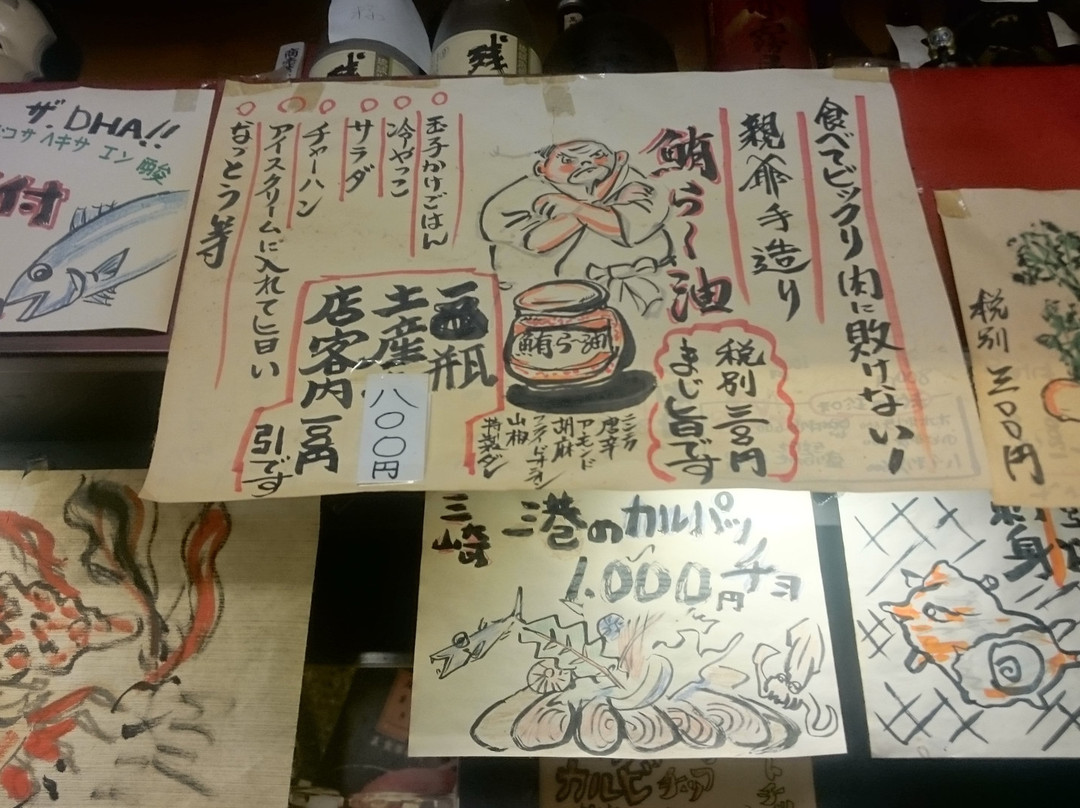 残
残
食べてビックリ肉に敗けないー
親爺手造り
鮪らー油
税別三百円
まじ旨です
玉子かけごはん
冷やっこ
サラダ
チャーハン
アイスクリームに入れて旨い
なっとう等
鮪らー油
ニンニク
唐辛
アーモンド
胡麻
フライドオニオン
山椒
特製ダシ
瓶
土産
八〇〇円
店客内
引です
ザ・DHA!!
コサヘキサエン酸
付
税別三〇〇円
三崎港のカルパッチョ
1.000円
刺身
カルビ
チップ